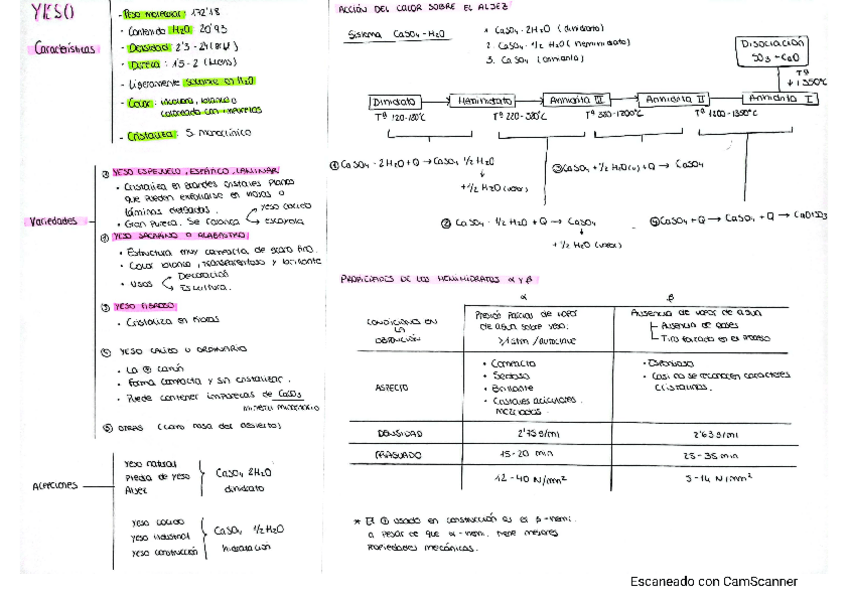 YESO
Características
- Peso molecular: 172'18
- Contenido H₂O 20'93
- Densidad 2'3 - 2'4
- Dureza: 1'5 - 2 (Mohs)
- Ligeramente soluble en H₂O
- Color: incoloro, blanco o
coloreado con impurezas
- Cristaliza: S. monoclínico
Variedades
① YESO ESPEJUELO, ESPÁTICO, LAMINAR
• Cristaliza en grandes cristales planos
que pueden exfoliarse en hojas o
láminas delgadas.
• Gran pureza. Se fabrica
yeso cocido
escayola
② YESO SACARINO O ALABASTRO
• Estructura muy compacta de grano fino.
• Color blanco, transparentoso y brillante
• Usos
Decoración
Escultura.
③ YESO FIBROSO
• Cristaliza en fibras
④ YESO CALIZO U ORDINARIO
• La ⊕ común
• Forma compacta y sin cristalizar.
• Puede contener impurezas de CaSO₄
⑤ OTRAS (como rosa del desierto)
ACEPCIONES
Yeso natural
Piedra de yeso
Aljez
CaSO₄ 2H₂O
dihidrato
Yeso cocido
Yeso industrial
Yeso construcción
CaSO₄ ½ H₂O
ACCIÓN DEL CALOR SOBRE EL ALJEZ
Sistema CaSO₄ - H₂O
1. CaSO₄ · 2H₂O (dihidrato)
2. CaSO₄ · ½ H₂O (hemihidrato)
3. CaSO₄ (anhidrita)
Disociación
SO₃ + CaO
Tª
↓ 1350ºC
Dihidrato → Hemihidrato → Anhidrita III → Anhidrita II → Anhidrita I
Tª 120-180ºC
Tª 1200-1350ºC
① CaSO₄ · 2H₂O + Q → CaSO₄ ½ H₂O
③ CaSO₄ + ½ H₂O(v) + Q → CaSO₄
② CaSO₄ · ½ H₂O + Q → CaSO₄
+ ½ H₂O (vapor)
PROPIEDADES DE LOS HEMIHIDRATOS α Y β
α
β
CONDICIONES EN
LA
OBTENCIÓN
Presión parcial de vapor
de agua sobre yeso:
≥ 1 atm / autoclave
Ausencia de vapor de agua
Ausencia de gases
Tiro forzado en el proceso
ASPECTO
• Compacto
• Sedoso
• Brillante
• Cristales aciculares.
• Esponjoso
• Casi no se reconocen caracteres
cristalinos.
DENSIDAD
2'75 g/ml
2'63 g/ml
FRAGUADO
15 - 20 min
25 - 35 min
12 - 40 N/mm²
5 - 14 N/mm²
* El ⊕ usado en construcción es el β-hemi.
a pesar de que α-hemi. tiene mejores
propiedades mecánicas.
Escaneado con CamScanner